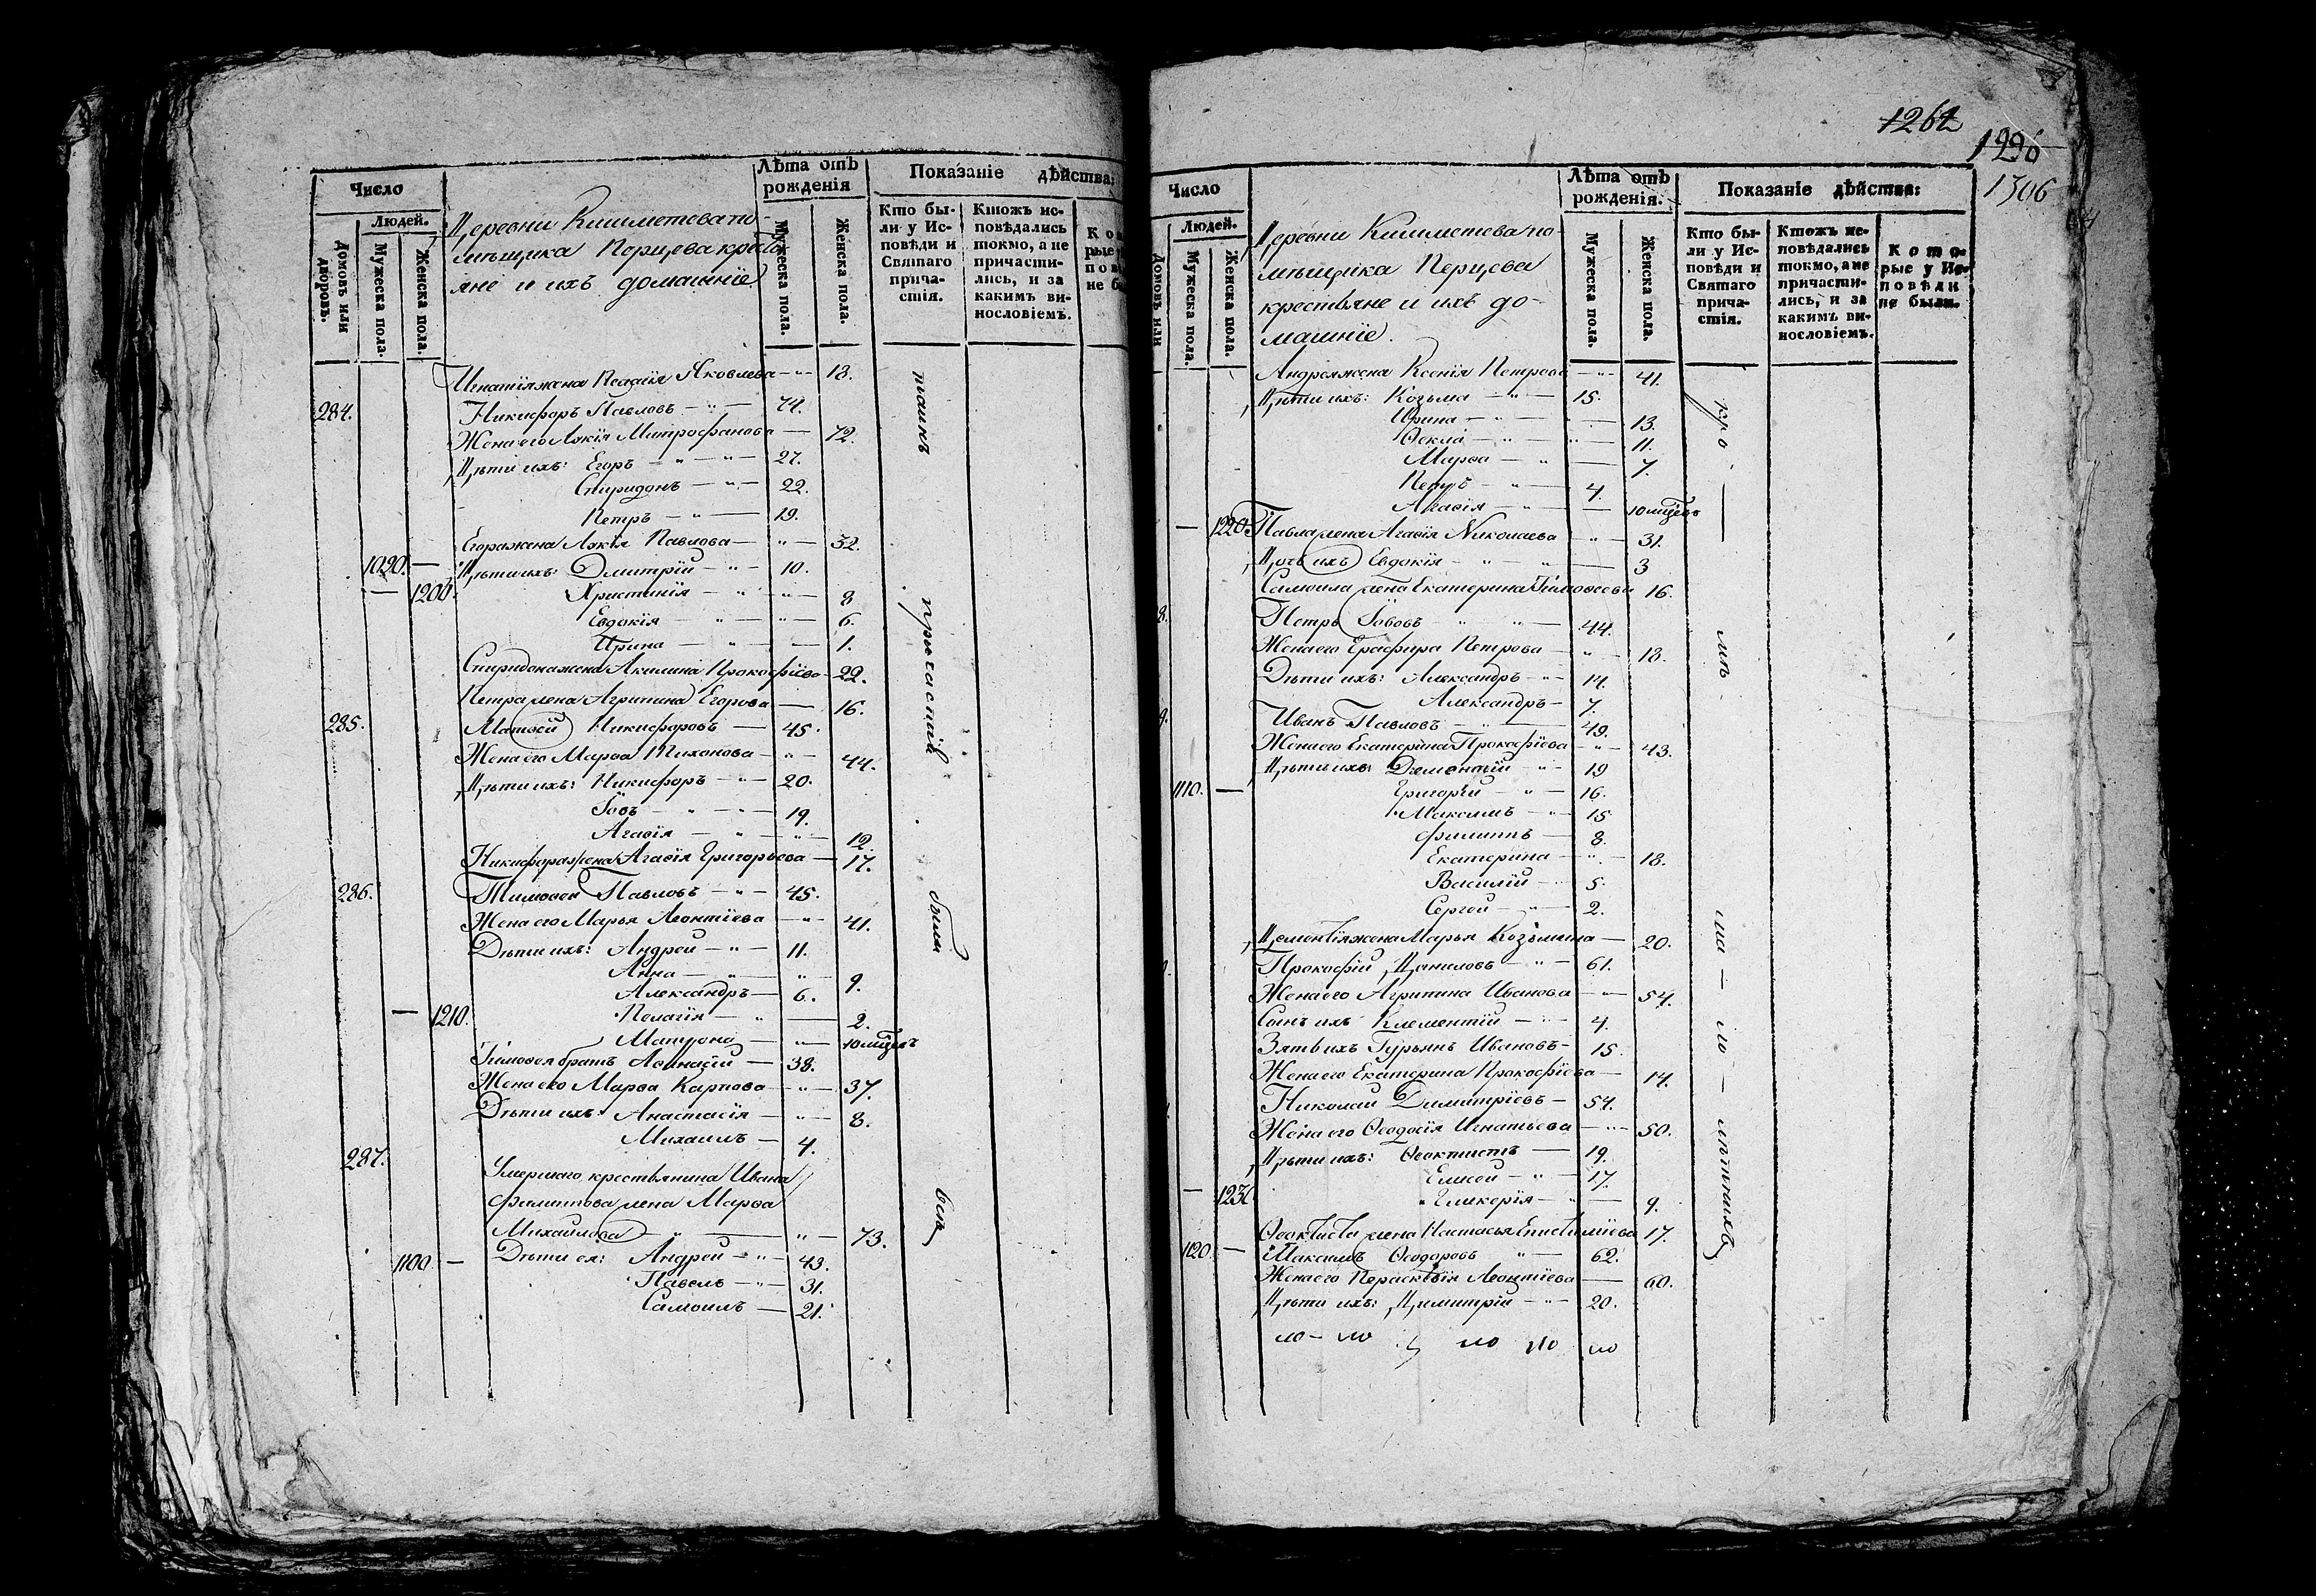 Число
Людей.
Домовъ или дворовъ.
Мужеска пола.
Женска пола.
Деревни Кишметева по-
мѣщика Перцева кресть-
яне и ихъ домашнїе.
Лѣта отъ рожденїя
Мужеска пола.
Женска пола.
Показанїе дѣйства:
Кто бы-
ли у Ис-
повѣди и
Святаго
прича-
стїя.
Ктожъ ис-
повѣдались
токмо, а не
причасти-
лись, и за
какимъ ви-
нословїемъ.
Игнатїя жена Яковлева 18.
284. Никифоръ Павловъ 74.
Жена его Лукїя Митрофанова 72.
Дѣти ихъ: Егоръ 27.
Спиридонъ 22.
Петръ 19.
Егора жена Лукїя Павлова 32.
1090. Дѣти ихъ: Дмитрїй 10.
1200. Христинїя 8
Евдокїя 6.
Ирина 1.
Спиридона жена Акилина Прокофїева 22.
Петра жена Агрипина Егорова 16.
285. Матѳей Никифоровъ 45.
Жена его Марѳа Тихонова 44.
Дѣти ихъ: Никифоръ 20.
Іовъ 19.
Агаѳїя 12.
Никифора жена Агаѳїя Григорьева 17.
286. Тимоѳей Павловъ 45.
Жена его Марья Леонтїева 41.
Дѣти ихъ: Андрей 11.
Анна 9.
Александръ 6.
1210. Пелагїя 2.
Матрона 10 мѣсѣцъ
Тимоѳея братъ Аѳанасїй 38.
Жена его Марѳа Карпова 37.
Дѣти ихъ: Анастасїя 8.
Михаилъ 4.
287. Умершаго крестьянина Ивана
Филиппова жена Марѳа
Михайлова 73.
1100. Дѣти ея: Андрей 43.
Павелъ 31.
Самоилъ 21.
причастїя
были
всѣ
1264
1296
1306
Число
Людей.
Домовъ или
Мужеска пола.
Женска пола.
Деревни Кишметева по-
мѣщика Перцева
крестьяне и ихъ до-
машнїе.
Лѣта отъ рожденїя.
Мужеска пола.
Женска пола.
Показанїе дѣйства:
Кто бы-
ли у Ис-
повѣди и
Святаго
прича-
стїя.
Ктожъ ис-
повѣдались
токмо, а не
причасти-
лись, и за
какимъ ви-
нословїемъ.
Кото-
рые у Ис-
повѣди
не были.
Андрея жена Ксенїя Петрова 41.
Дѣти ихъ: Козьма 15.
Ирина 13.
Ѳекла 11.
Марѳа 7.
Петръ 4.
Агаѳїя 10 мѣсѣцъ
1220. Павла жена Агаѳїя Николаева 31.
Дочь ихъ Евдокїя 3
Самоила жена Екатерина Тимоѳеева 16.
8. Петръ Іововъ 44.
Жена его Петрова 18.
Дѣти ихъ: Александръ 14.
Александръ 7.
9. Иванъ Павловъ 49.
Жена его Екатерина Прокофїева 43.
Дѣти ихъ: Дементїй 19
1110. Григорїй 16.
Максимъ 15
Филиппъ 8.
Екатерина 18.
Василїй 5.
Сергей 2.
Дементїя жена Марья Козьмина 20.
Прокофїй Даниловъ 61.
Жена его Агрипина Иванова 54.
Сынъ ихъ Клементїй 4.
Зять ихъ Гурьянъ Ивановъ 15.
Жена его Екатерина Прокофїева 14.
Николай Димитрїевъ 54.
Жена его Ѳеодосїя Игнатьева 50.
Дѣти ихъ: Ѳеоктистъ 19.
Елисей 17.
1230 Гликерїя 9.
Ѳеоктиста жена Настасья 17.
1120. Максимъ Ѳеодоровъ 62.
Жена его Параскевїя Леонтїева 60.
Дѣти ихъ: Димитрїй 20.
кро
мѣ
ма
ло
лѣтнихъ